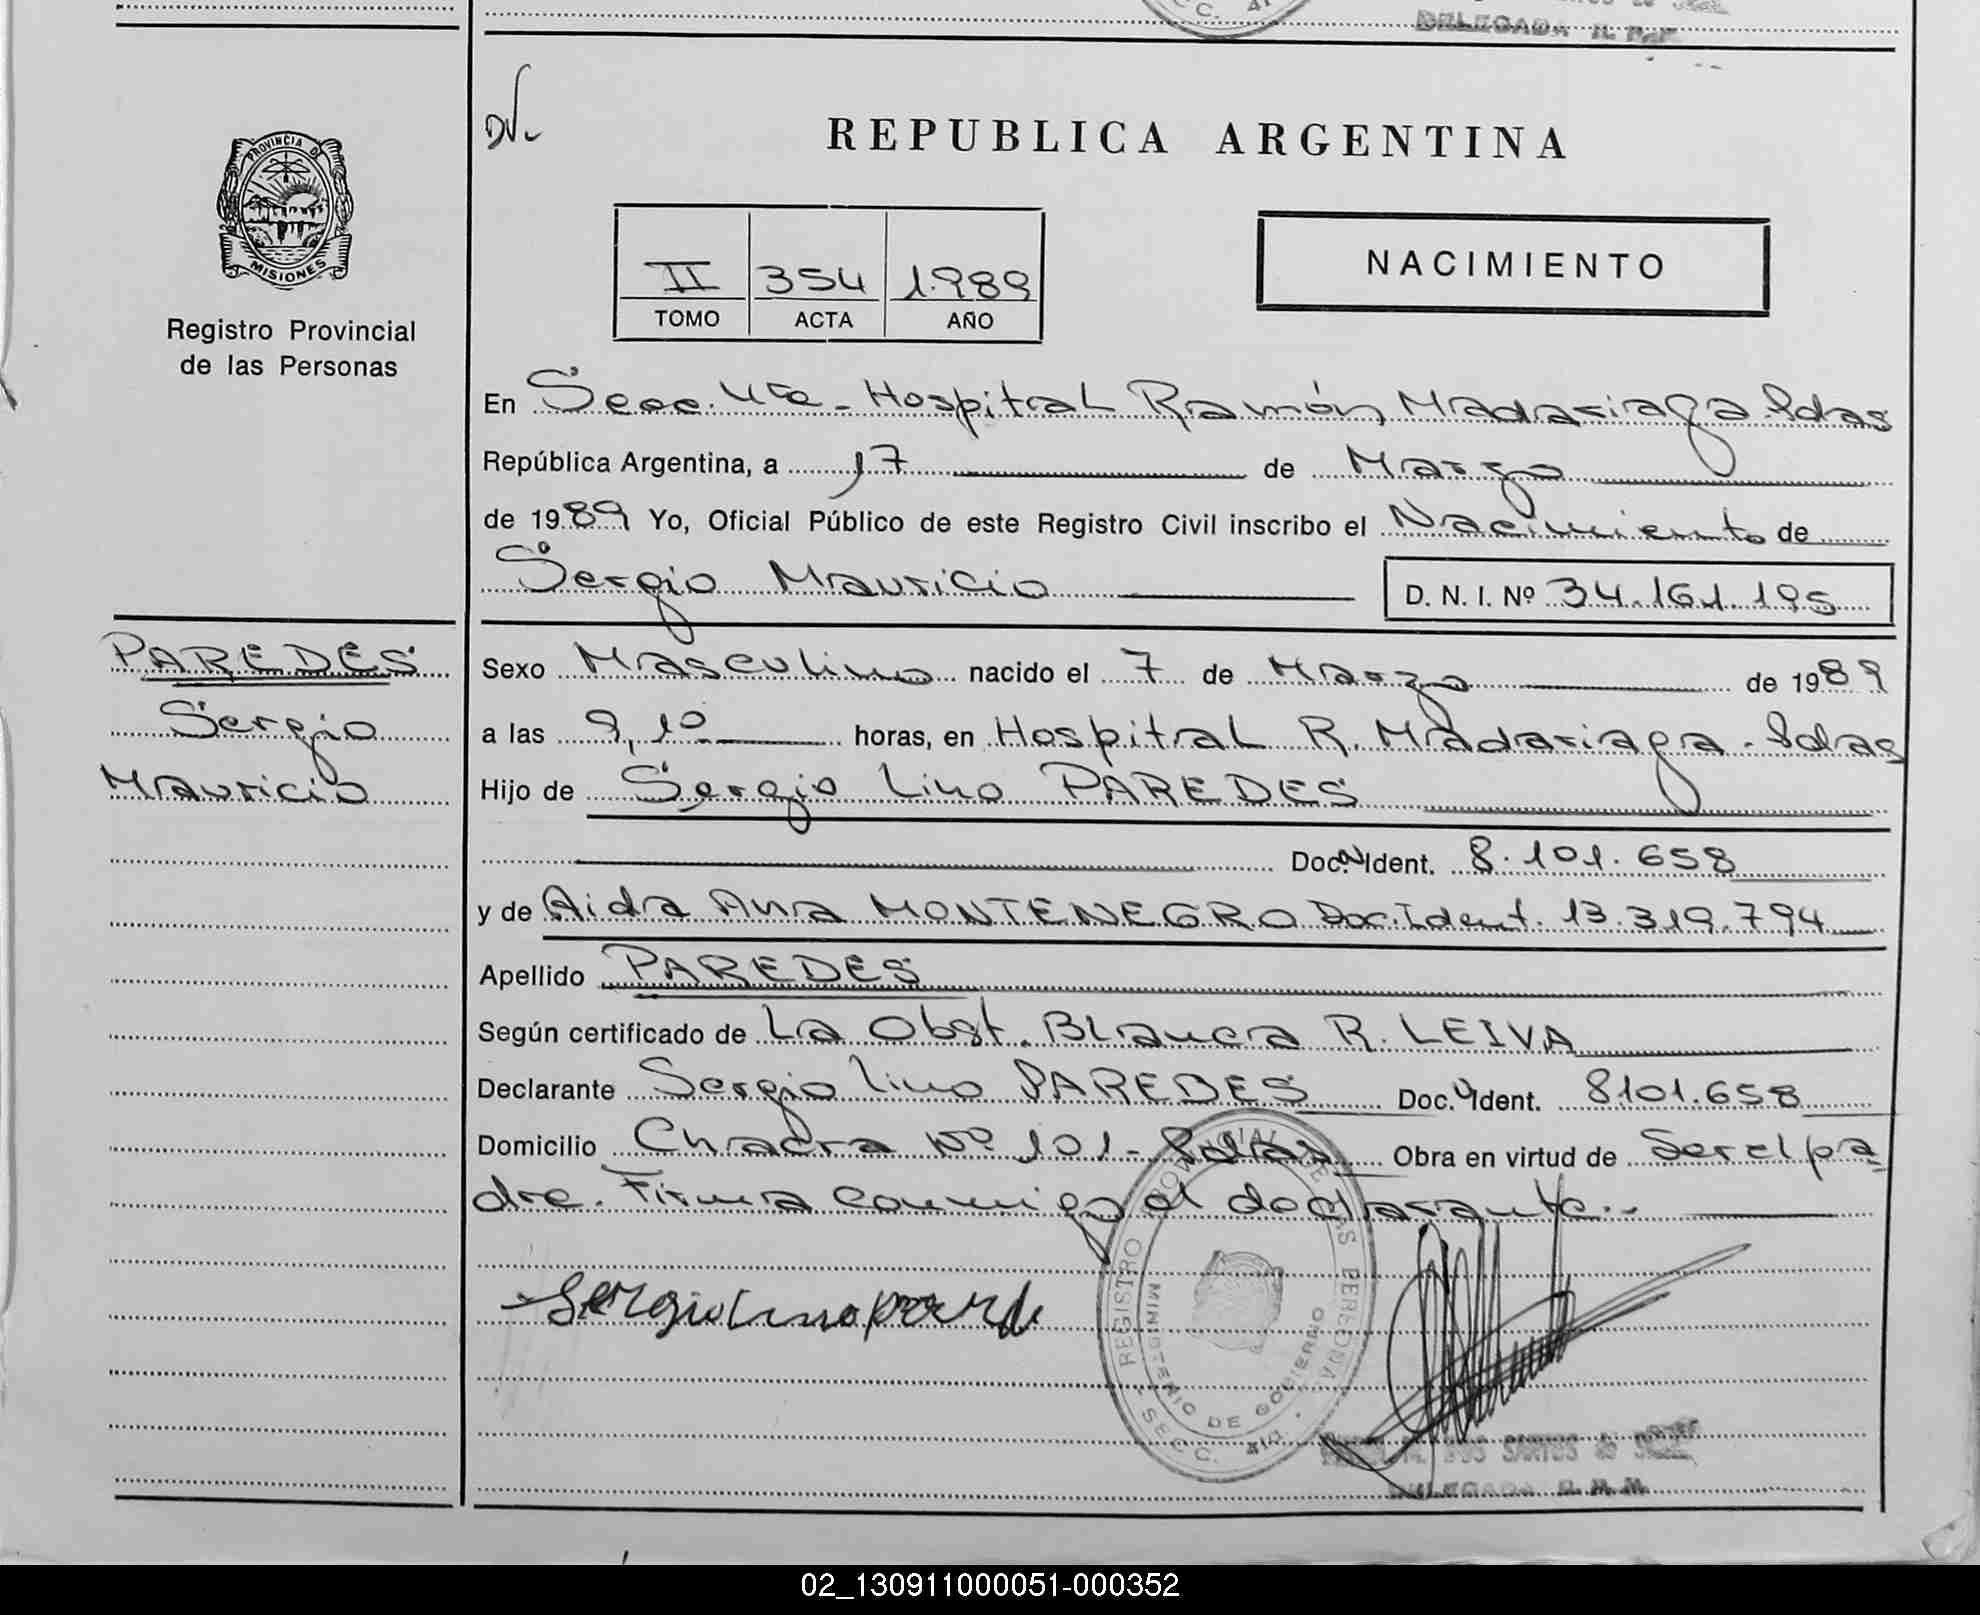 DELEGADA R. P. P.
DV.
REPUBLICA ARGENTINA
PROVINCIA DE
MISIONES
Registro Provincial
de las Personas
II 354 1.989
TOMO ACTA AÑO
NACIMIENTO
En Secc. 4ta - Hospital Ramón Madariaga. Pdas
República Argentina, a 17 de Marzo
de 1989 Yo, Oficial Público de este Registro Civil inscribo el Nacimiento de
Sergio Mauricio D. N. I. Nº 34.161.195
PAREDES
Sergio
Mauricio
Sexo Masculino nacido el 7 de Marzo de 1989
a las 9,10 horas, en Hospital R. Madariaga - Pdas
Hijo de Sergio Lino PAREDES
Doc. Ident. 8.101.658
y de Aida Ana MONTENEGRO Doc. Ident. 13.319.794
Apellido PAREDES
Según certificado de La Obst. Blanca R. LEIVA
Declarante Sergio Lino PAREDES Doc. Ident. 8101.658
Domicilio Chacra Nº 101 - Pdas Obra en virtud de Ser el pa
dre. Firma conmigo el declarante.-
Sergio Lino parede
REGISTRO PROVINCIAL DE LAS PERSONAS
MINISTERIO DE GOBIERNO
SECC. 4ta
DOS SANTOS de
DELEGADA R. P. P.
02_130911000051-000352